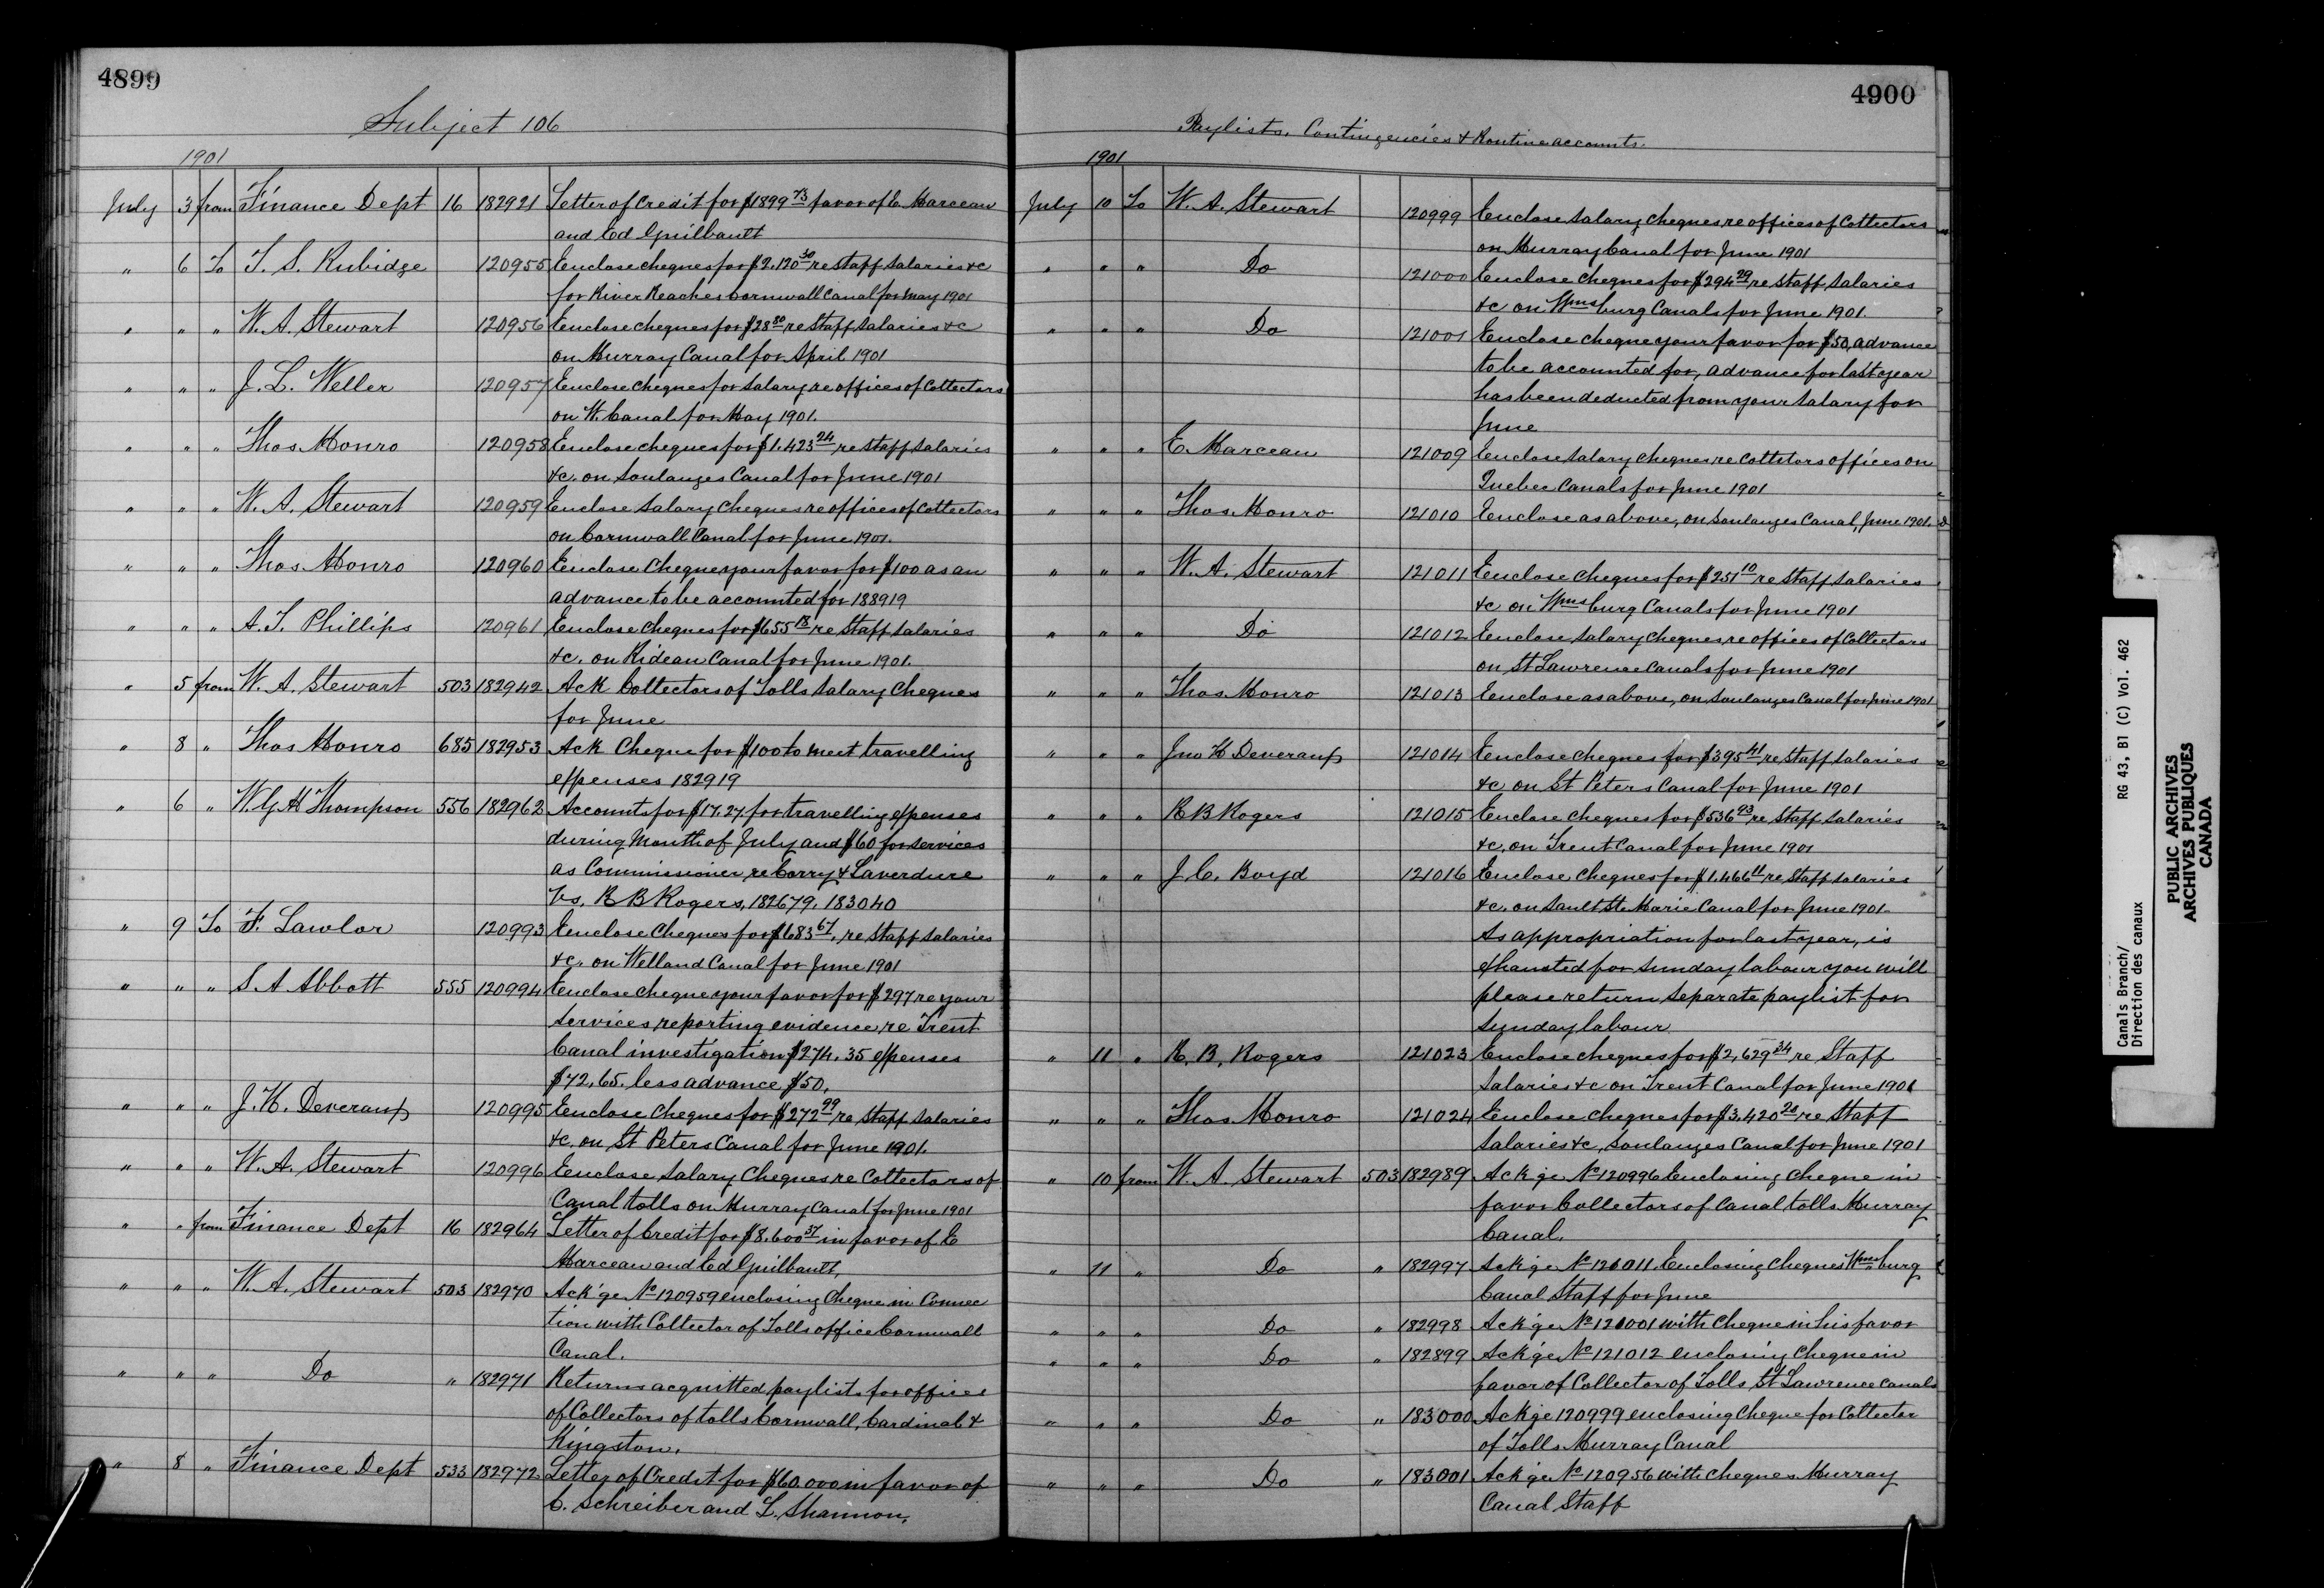 4899
Subject 106
1901
July 3 from Finance Dept 16 182921 Letter of Credit for $1899 73 favor of E. Marceau
and Ed Guilbault
" 6 To T. S. Rubidge 120955 Enclose cheques for $2.120 30 re staff salaries &c
for River Reaches Cornwall Canal for May 1901
" " " W. A. Stewart 120956 Enclose cheques for $28 80 re Staff salaries &c
on Murray Canal for April 1901
" " " J. L. Weller 120957 Enclose cheques for salary re offices of Collectors
on W. Canal for May 1901.
" " " Thos Monro 120958 Enclose cheques for $1.423 24 re Staff salaries
&c. on Soulanges Canal for June 1901
" " " W. A. Stewart 120959 Enclose salary cheques re offices of Collectors
on Cornwall Canal for June 1901.
" " " Thos Monro 120960 Enclose Cheque your favor for $100 as an
advance to be accounted for 188919
" " " A. T. Phillips 120961 Enclose cheques for $655 18 re Staff salaries
&c. on Rideau Canal for June 1901.
" 5 from W. A. Stewart 503 182942 Ack Collectors of Tolls salary Cheques
for June
" 8 " Thos Monro 685 182953 Ack Cheque for $100 to meet travelling
expenses 182919
" 6 " W. G. M Thompson 556 182962 Accounts for $17.27 for travelling expenses
during Month of July and $60 for services
as Commissioner re Corry & Laverdure
Vs. R B Rogers, 182679. 183040
" 9 To F. Lawlor 120993 Enclose Cheques for $683 67, re Staff salaries
&c. on Welland Canal for June 1901
" " " S. A Abbott 555 120994 Enclose cheque your favor for $297 re your
services reporting evidence re Trent
Canal investigation $274.35 expenses
$72.65. less advance $50.
" " " J. H. Deveraux 120995 Enclose Cheques for $272 99 re Staff salaries
&c. on St Peters Canal for June 1901.
" " " W. A. Stewart 120996 Enclose Salary Cheques re Collectors of
Canal tolls on Murray Canal for June 1901
" " from Finance Dept 16 182964 Letter of Credit for $8.600 37 in favor of E
Marceau and Ed Guilbault,
" " " W. A. Stewart 503 182970 Ack'ge No 120959 enclosing Cheque in Connec
tion with Collector of Tolls office Cornwall
Canal.
" " " Do " 182971 Returns acquitted paylists for offices
of Collectors of tolls Cornwall, Cardinal &
Kingston.
" 8 " Finance Dept 533 182972 Letter of Credit for $60.000 in favor of
C. Schreiber and L. Shannon.
4900
Paylists, Contingencies & Routine accounts.
1901
July 10 To W. A. Stewart 120999 Enclose salary cheques re offices of Collectors
on Murray Canal for June 1901
" " " Do 121000 Enclose Cheques for $294 29 re Staff salaries
&c on Wmsburg Canals for June 1901.
" " " Do 121001 Enclose cheque your favor for $50, advance
to be accounted for, advance for last year
has been deducted from your salary for
June
" " " E. Marceau 121009 Enclose salary cheques re Colltstors offices on
Quebec Canals for June 1901
" " " Thos. Monro 121010 Enclose as above, on Soulanges Canal, June 1901.
" " " W. A. Stewart 121011 Enclose Cheques for $251 10 re Staff salaries
&c on Wmsburg Canals for June 1901
" " " Do 121012 Enclose salary cheques, re offices of Collectors
on St Lawrence Canals for June 1901
" " " Thos. Monro 121013 Enclose as above, on Soulanges Canal for June 1901
" " " Jno H Deveraux 121014 Enclose cheques for $395 41, re Staff salaries
&c on St Peters Canal for June 1901
" " " R B Rogers 121015 Enclose cheques for $536 93 re Staff salaries
&c, on Trent Canal for June 1901
" " " J. C. Boyd 121016 Enclose Cheques for $1.466 11 re Staff salaries
&c. on Sault Ste Marie Canal for June 1901.
As appropriation for last year, is
exhausted for Sunday labour you will
please return separate paylist for
Sunday labour
" 11 " R. B. Rogers 121023 Enclose cheques for $2,629 34 re Staff
salaries &c on Trent Canal for June 1901
" " " Thos. Monro 121024 Enclose cheques for $3.420 20 re Staff
salaries &c, Soulanges Canal for June 1901
" 10 from W. A. Stewart 503 182989 Ack'ge No 120996 Enclosing Cheque in
favor Collectors of Canal tolls Murray
Canal.
" 11 " Do " 182997 Ack'ge No 121011. Enclosing Cheques Wmsburg
Canal Staff for June
" " " Do " 182998 Ack'ge No 121001 with Cheque in his favor
" " " Do " 182899 Ack'ge No 121012 enclosing Cheque in
favor of Collector of Tolls St Lawrence Canals
" " " Do " 183000 Ack'ge 120999 enclosing Cheque for Collector
of Tolls Murray Canal
" " " Do " 183001 Ack'ge No 120956 with cheques Murray
Canal Staff
Canals Branch/ RG 43, B1 (C) Vol. 462
Direction des canaux
PUBLIC ARCHIVES
ARCHIVES PUBLIQUES
CANADA